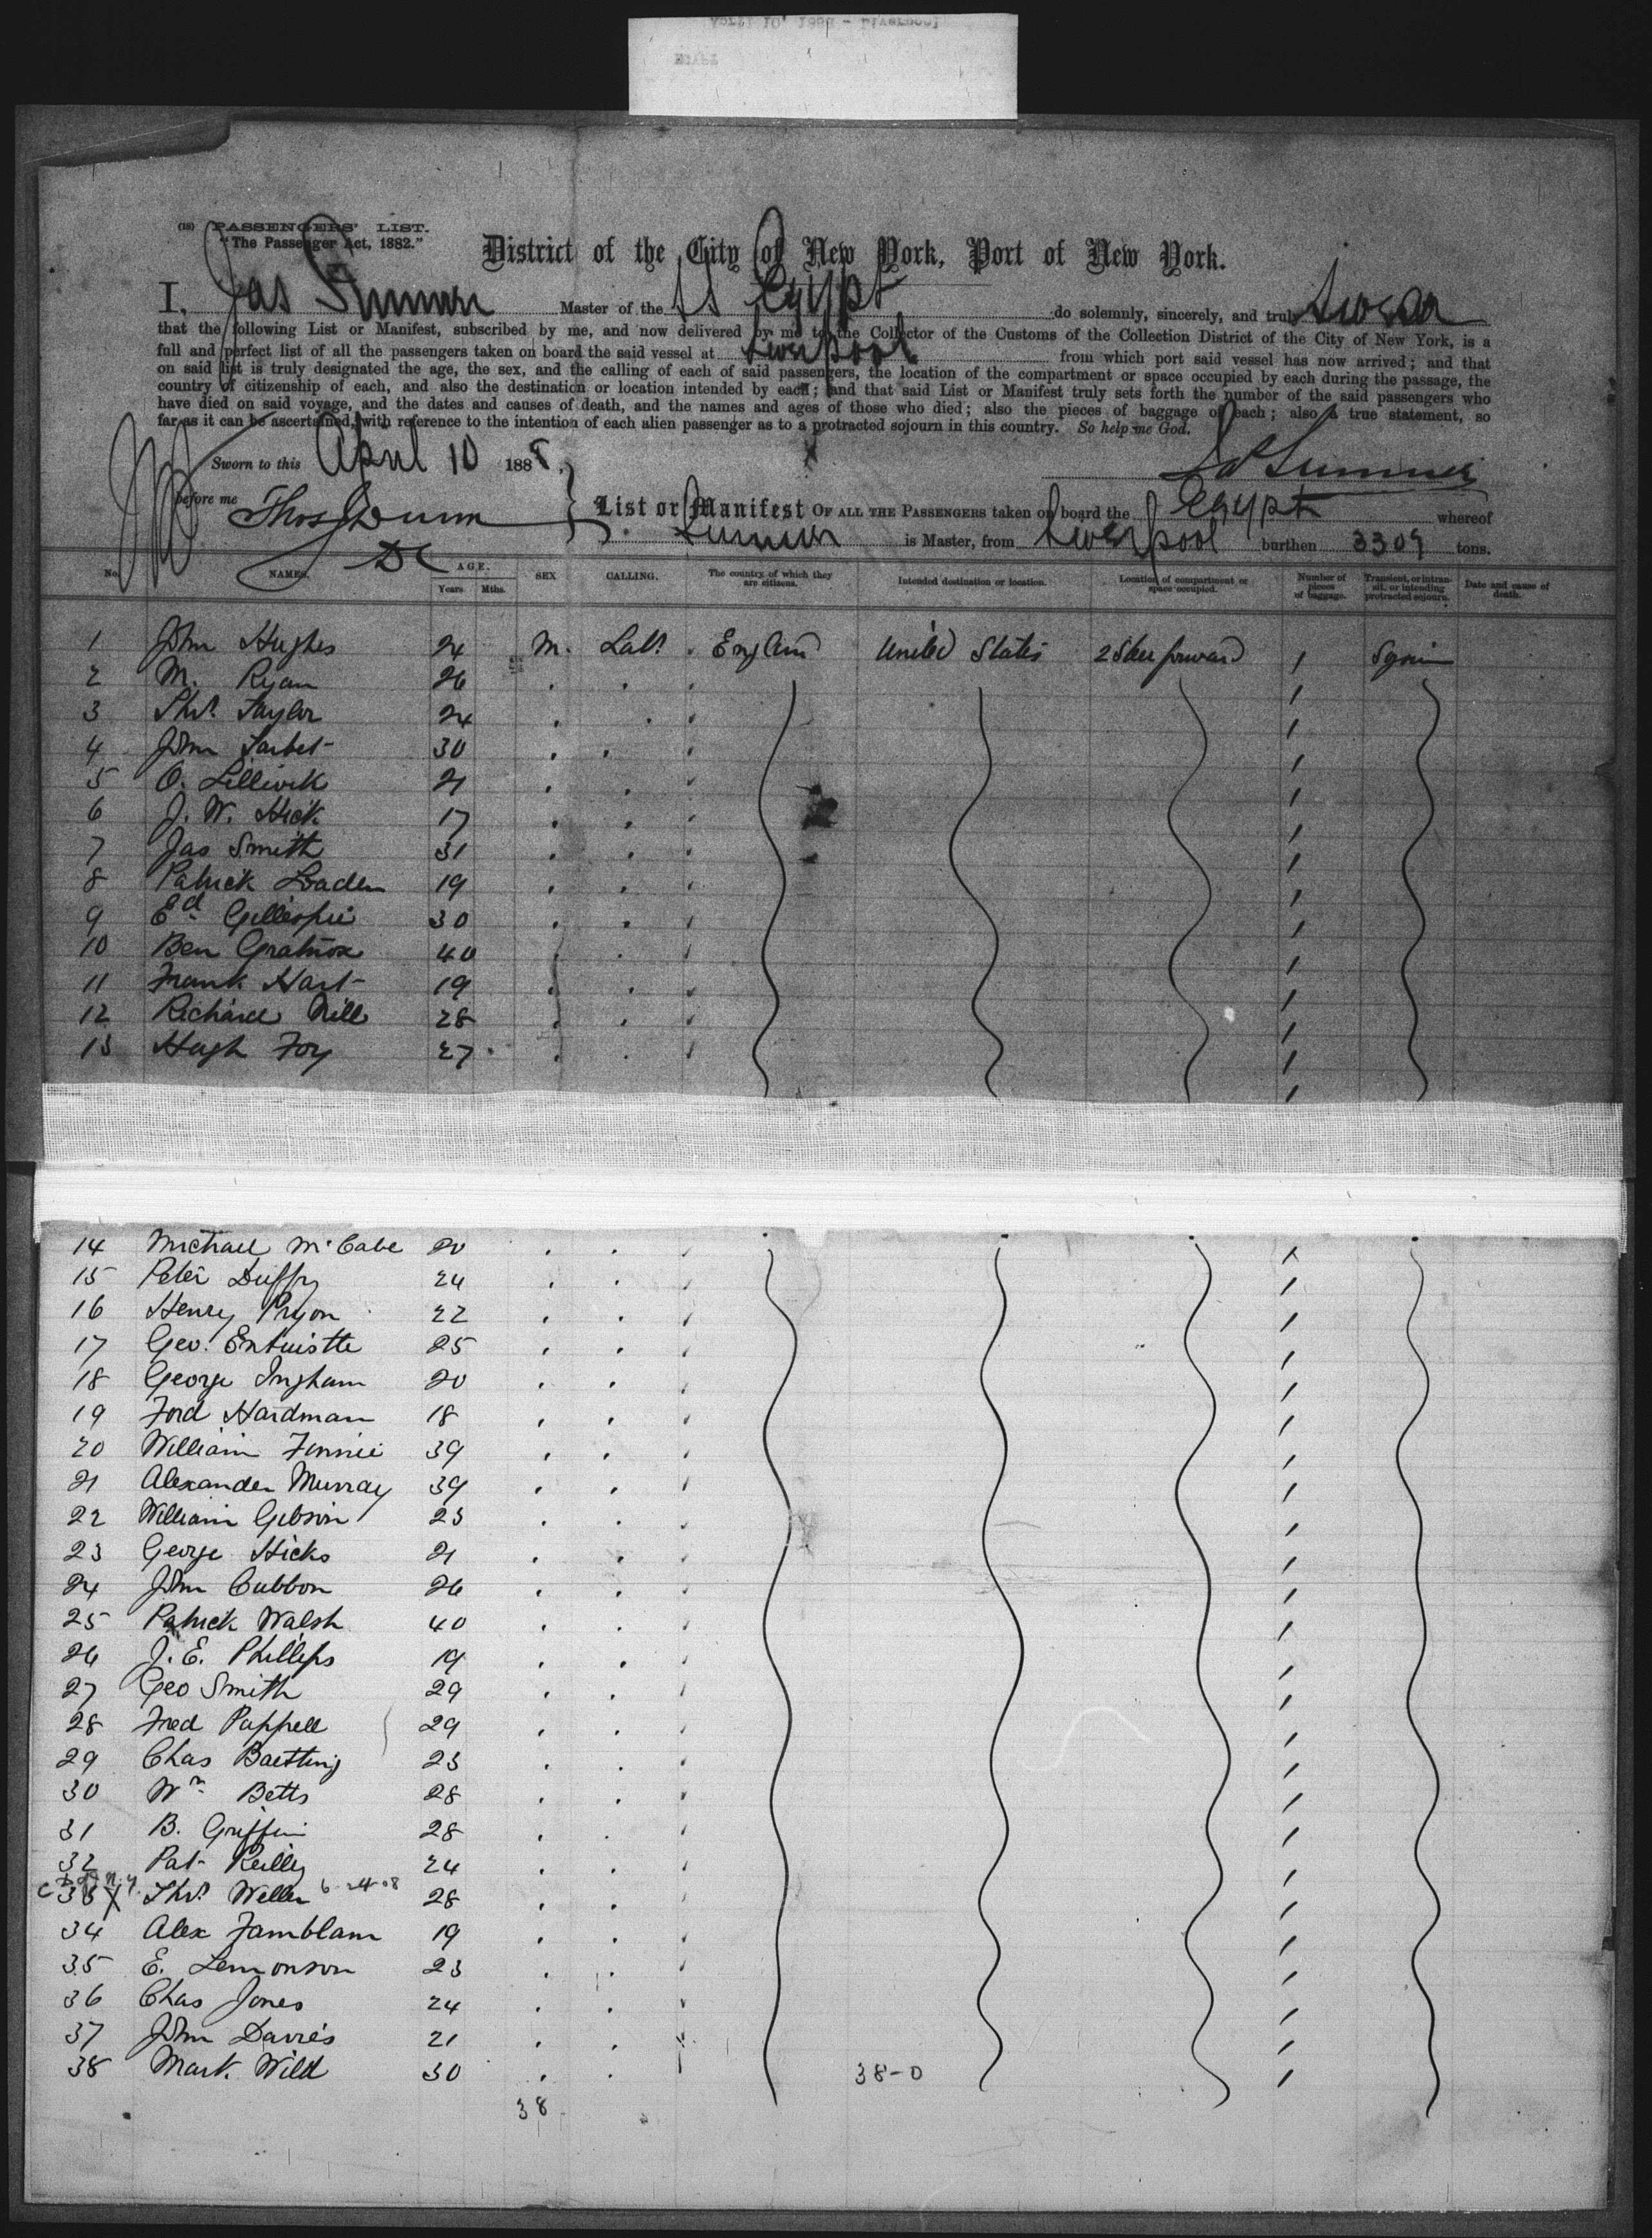 (18) PASSENGERS' LIST.
"The Passenger Act, 1882."
District of the City of New York, Port of New York.
I, Jas Sumner Master of the SS Egypt do solemnly, sincerely, and truly Swear
that the following List or Manifest, subscribed by me, and now delivered by me to the Collector of the Customs of the Collection District of the City of New York, is a
full and perfect list of all the passengers taken on board the said vessel at Liverpool from which port said vessel has now arrived; and that
on said list is truly designated the age, the sex, and the calling of each of said passengers, the location of the compartment or space occupied by each during the passage, the
country of citizenship of each, and also the destination or location intended by each; and that said List or Manifest truly sets forth the number of the said passengers who
have died on said voyage, and the dates and causes of death, and the names and ages of those who died; also the pieces of baggage of each; also a true statement, so
far as it can be ascertained, with reference to the intention of each alien passenger as to a protracted sojourn in this country. So help me God.
Sworn to this April 10 1888,
Sumner
before me Thos Dunn
DC
List or Manifest OF ALL THE PASSENGERS taken on board the Egypt whereof
Sumner is Master, from Liverpool burthen 3309 tons.
No. NAMES. AGE. Years Mths. SEX CALLING. The country of which they are citizens. Intended destination or location. Location of compartment or space occupied. Number of pieces of baggage. Transient, or intransit, or intending protracted sojourn. Date and cause of death.
1 John Hughes 24 M. Labr England United States 2 Stee forward 1
2 M. Ryan 26
3 Thos Taylor 24
4 John Tarbet 30
5 O. Lillivik 21
6 J. W. Hick 17
7 Jas Smith 31
8 Patrick Loaden 19
9 Ed Gillespie 30
10 Ben Gratrix 40
11 Frank Hart 19
12 Richard Nill 28
13 Hugh Foy 27
14 Michael McCabe 20
15 Peter Duffy 24
16 Henry Pryon 22
17 Geo. Entwistle 25
18 George Ingham 20
19 Ford Hardman 18
20 William Finnie 39
21 Alexander Murray 39
22 William Gibson 23
23 George Hicks 21
24 John Cubbon 26
25 Patrick Walsh 40
26 J. E. Phillips 19
27 Geo Smith 29
28 Fred Pappell 29
29 Chas Baetting 23
30 Wm Betts 28
31 B. Griffin 28
32 Pat Reilly 24
33 X Thos Weller 28
34 Alex Famblam 19
35 E. Lemonson 23
36 Chas Jones 24
37 John Davies 21
38 Mark Wild 30 38-0
38